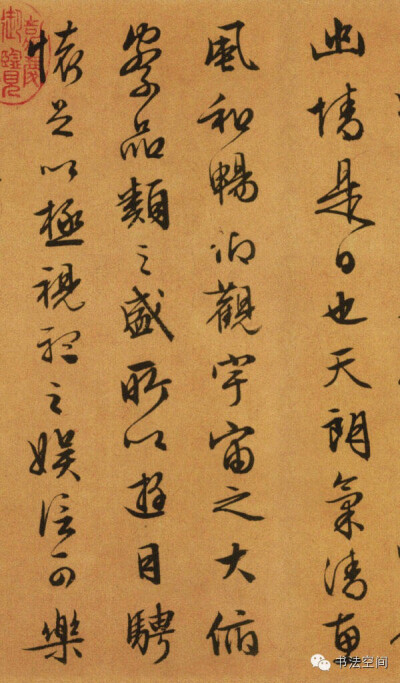 幽情是日也天朗氣清惠
風和暢仰觀宇宙之大俯
察品類之盛所以遊目騁
懷足以極視聽之娛信可樂
嘉慶御覽
书法空间